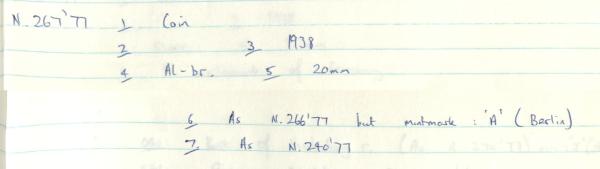 N. 267'77 1 Coin
2 3 1938
4 Al-br. 5 20mm
6 As N.266'77 but mintmark : 'A' (Berlin)
7 As N.240'77